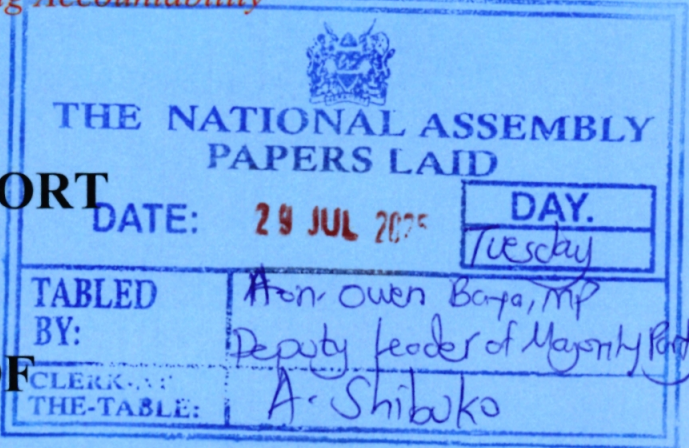 ng Accountability
THE NATIONAL ASSEMBLY
PAPERS LAID
ORT
DATE: 29 JUL 2025
DAY.
Tuesday
TABLED BY:
Hon. Owen Baya, MP
Deputy Leader of Majority Party
OF
CLERK-AT THE-TABLE:
A. Shibuko